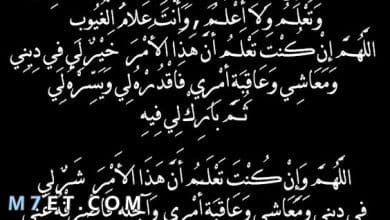 وَتَعْلَمُ وَلاَ أَعْلَمُ، وَأَنْتَ عَلاَّمُ الْغُيُوبِ
اللَّهُمَّ إِنْ كُنْتَ تَعْلَمُ أَنَّ هَذَا الأَمْرَ خَيْرٌ لِي فِي دِينِي
وَمَعَاشِي وَعَاقِبَةِ أَمْرِي فَاقْدُرْهُ لِي وَيَسِّرْهُ لِي
ثُمَّ بَارِكْ لِي فِيهِ
اللَّهُمَّ وَإِنْ كُنْتَ تَعْلَمُ أَنَّ هَذَا الأَمْرَ شَرٌّ لِي
فِي دِينِي وَمَعَاشِي وَعَاقِبَةِ أَمْرِي وَآجِلِهِ فَاصْرِفْهُ عَنِّي
M7ET.COM